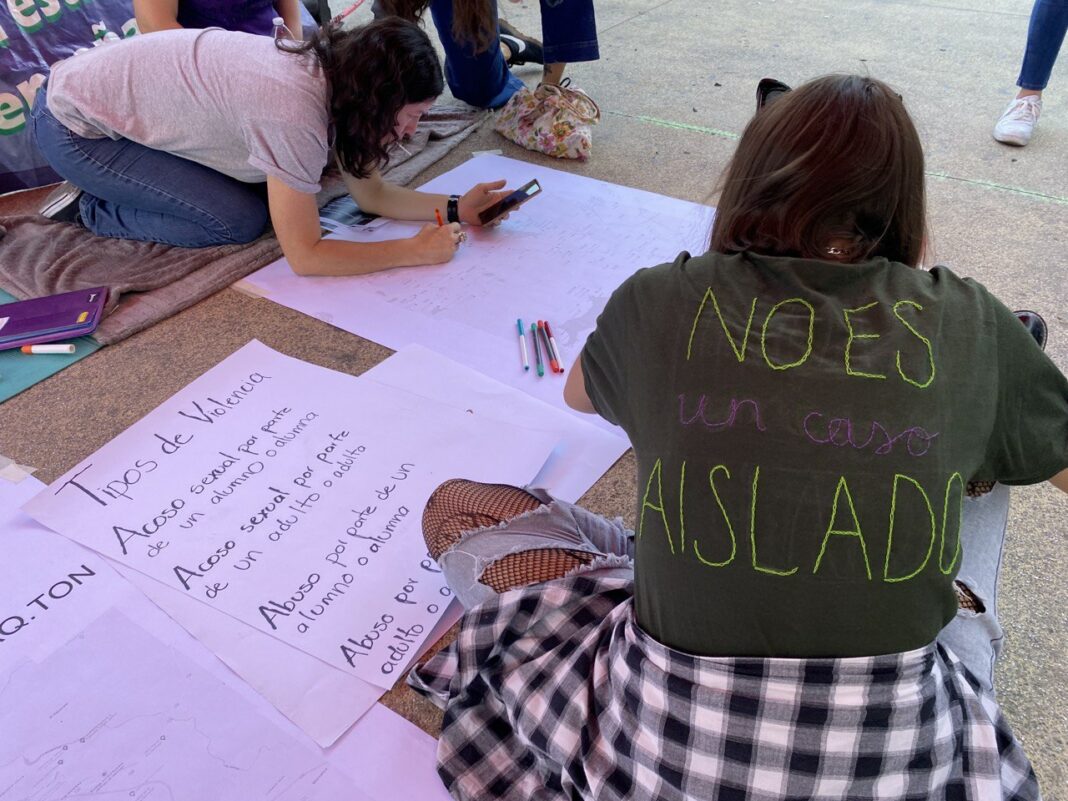 NO ES
un caso
AISLADO
Tipos de Violencia
Acoso sexual por parte
de un alumno o alumna
Acoso sexual por parte
de un adulto o adulta
Abuso por parte de un
alumno o alumna
Abuso por p
adulto o a
AQ. TON